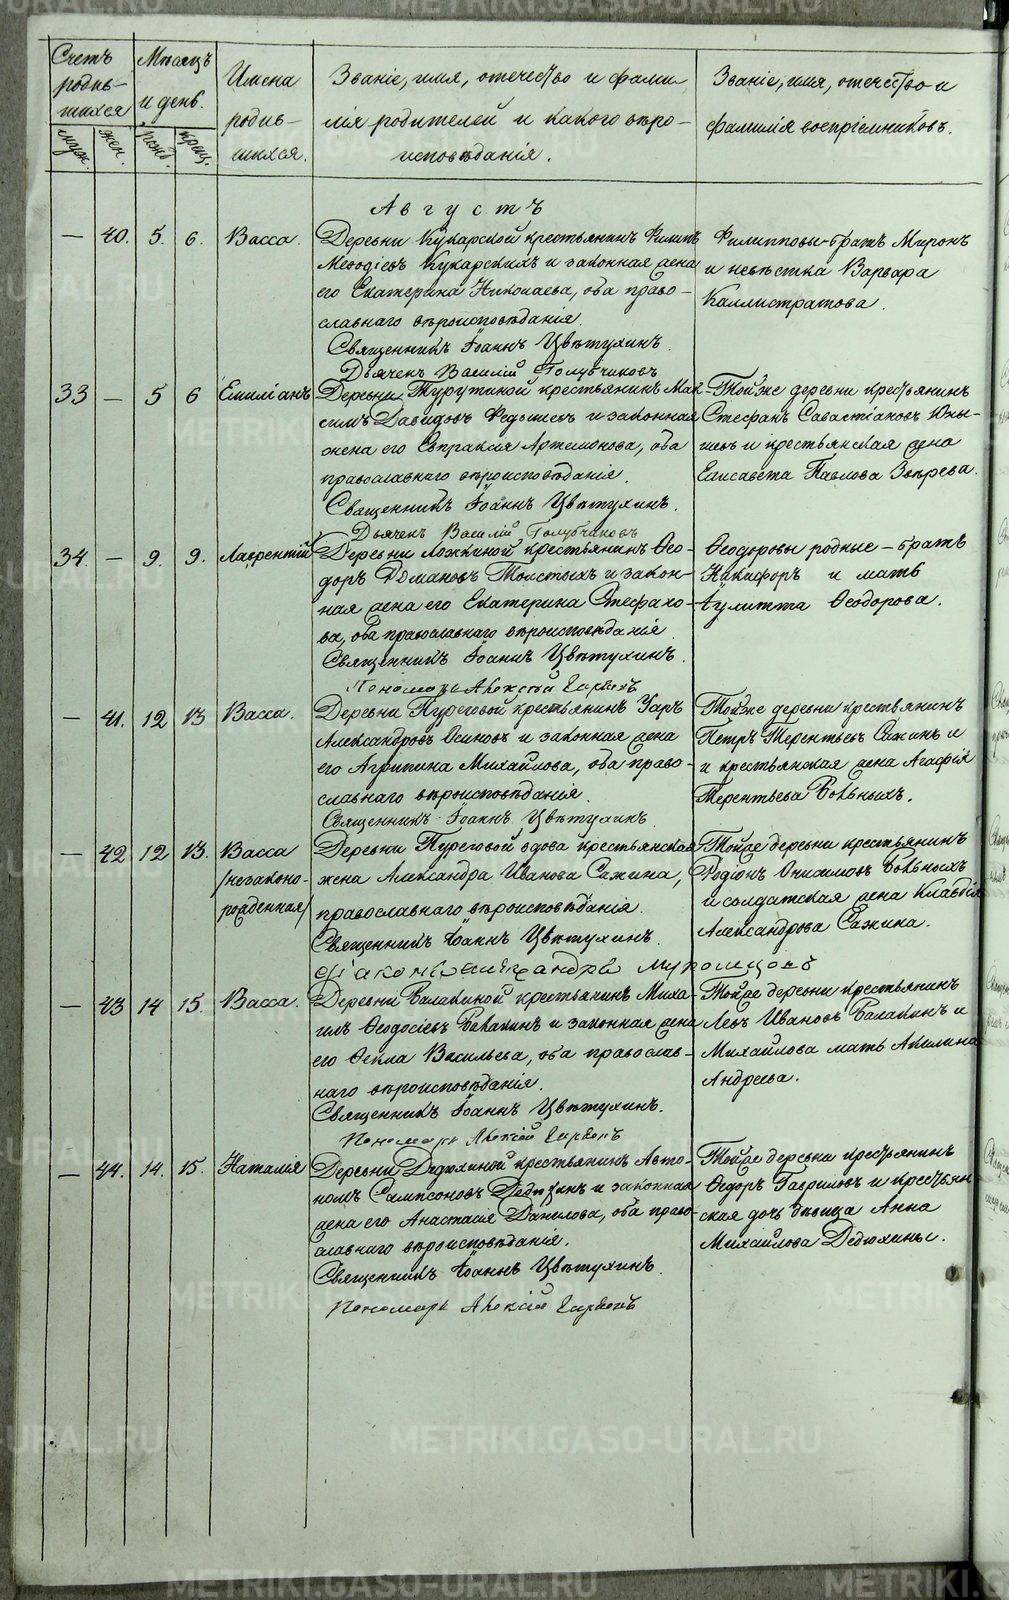 METRIKI.GASO-URAL.RU
Счетъ родив-шихся
Мѣсяцъ и день.
Имена родив-шихся.
Званіе, имя, отечество и фами-
лія родителей и какого вѣро-
исповѣданія.
Званіе, имя, отечество и
фамилія воспріемниковъ.
муж. жен. рожд. крещ.
Августъ
— 40. 5. 6. Васса.
Деревни Кукарской крестьянинъ Филипъ
Меѳодіевъ Кукарскихъ и законная жена
его Екатерина Николаева, оба право-
славнаго вѣроисповѣданія.
Священникъ Іоаннъ Цвѣтухинъ.
Дьячекъ Василій Голубчиковъ
Филипповы-братъ Миронъ
и невѣстка Варвара
Каллистратова.
33 — 5 6 Емиліанъ
Деревни Турутиной крестьянинъ Мак-
симъ Давидовъ и законная
жена его Евпраксія Артемонова, оба
православнаго вѣроисповѣданія.
Священникъ Іоаннъ Цвѣтухинъ.
Дьячекъ Василій Голубчиковъ
Тойже деревни крестьянинъ
Стефанъ Савастіановъ
и крестьянская жена
Елисавета Павлова Звѣрева.
34. — 9. 9. Лаврентій
Деревни Ложкиной крестьянинъ Ѳео-
доръ Домановъ Толстыхъ и закон-
ная жена его Екатерина Стефано-
ва, оба православнаго вѣроисповѣданія
Священникъ Іоаннъ Цвѣтухинъ.
Пономарь Алексій
Ѳеодоровы родные-братъ
Никифоръ и мать
Іулитта Ѳеодорова.
— 41. 12 13 Васса.
Деревни Пуреговой крестьянинъ Уаръ
Александровъ Осиновъ и законная жена
его Агрипина Михайлова, оба право-
славнаго вѣроисповѣданія.
Священникъ Іоаннъ Цвѣтухинъ.
Тойже деревни крестьянинъ
Петръ Терентьевъ Сажинъ и
и крестьянская жена Агафія
Терентьева Вольныхъ.
— 42 12 13. Васса
/незаконо-
рожденная/
Деревни Пуреговой вдова крестьянская
жена Александра Иванова Сажина,
православнаго вѣроисповѣданія.
Священникъ Іоаннъ Цвѣтухинъ.
Діаконъ Александръ Муромцовъ
Тойже деревни крестьянинъ
Родіонъ Онисимовъ Вольныхъ
и солдатская жена Клавдія
Александрова Сажина.
— 43 14 15. Васса.
Деревни Балакиной крестьянинъ Миха-
илъ Ѳеодосіевъ Балакинъ и законная жена
его Ѳекла Васильева, оба православ-
наго вѣроисповѣданія.
Священникъ Іоаннъ Цвѣтухинъ.
Пономарь Алексій
Тойже деревни крестьянинъ
Левъ Ивановъ Балакинъ и
Михайлова мать Акилина
Андреева.
— 44. 14. 15. Наталія
Деревни Дедюхиной крестьянинъ Авто-
номъ Сампсоновъ Дедюхинъ и законная
жена его Анастасія Данилова, оба право-
славнаго вѣроисповѣданія.
Священникъ Іоаннъ Цвѣтухинъ.
Пономарь Алексій
Тойже деревни крестьянинъ
Ѳедоръ Гавриловъ и крестьян-
ская дочь дѣвица Анна
Михайлова Дедюхины.
METRIKI.GASO-URAL.RU